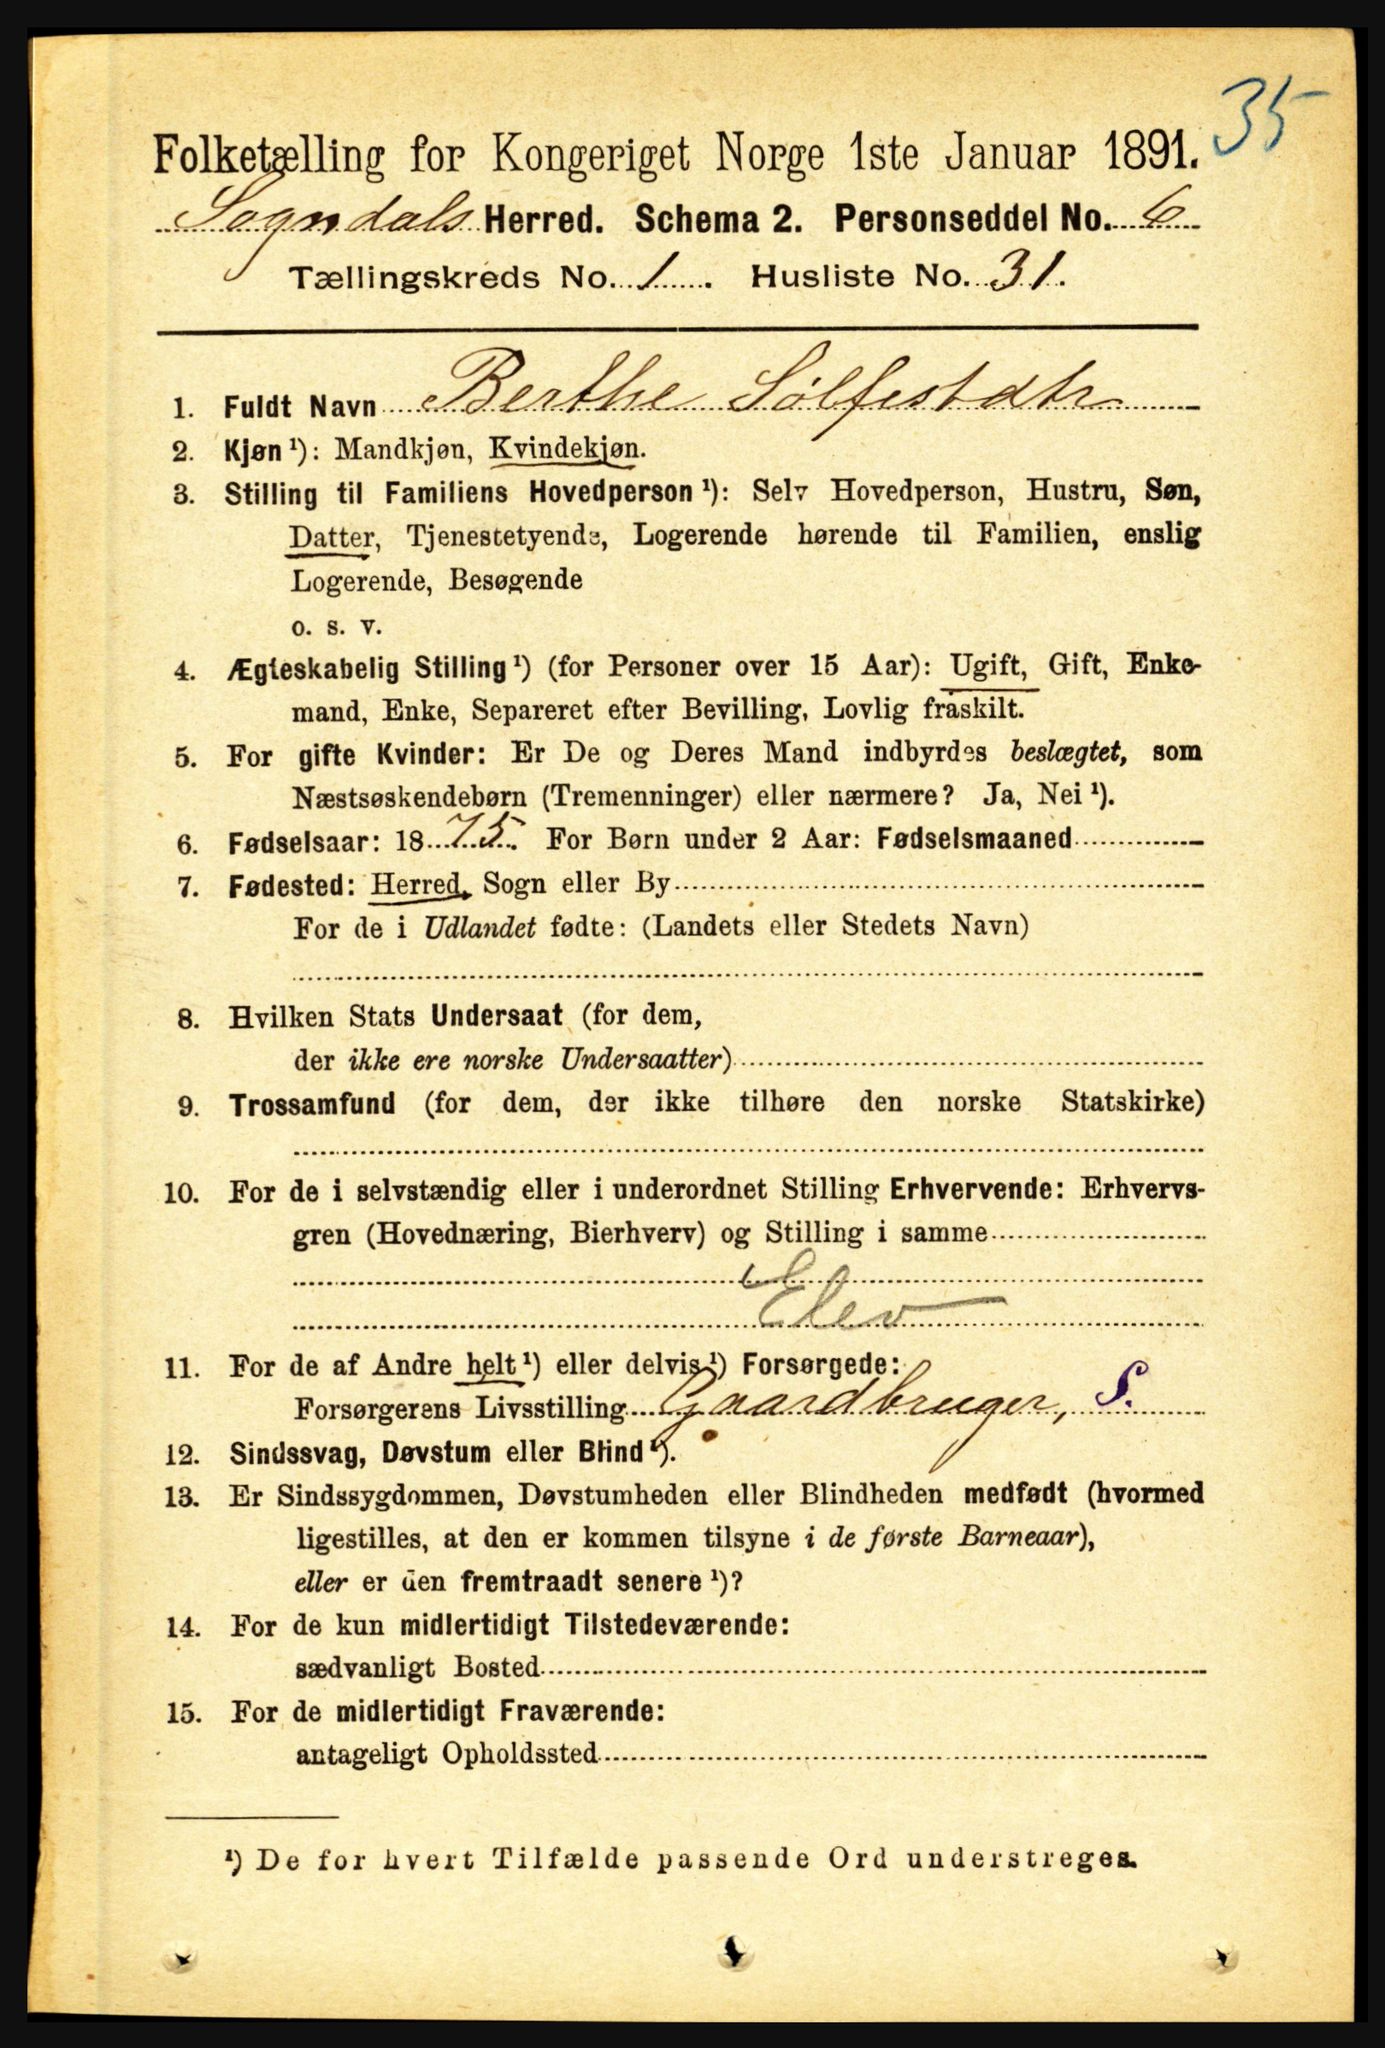 35
Folketælling for Kongeriget Norge 1ste Januar 1891.
Sogndals Herred. Schema 2. Personseddel No. 6
Tællingskreds No. 1. Husliste No. 31.
1. Fuldt Navn Berthe Sølfestdtr
2. Kjøn ¹): Mandkjøn, Kvindekjøn.
3. Stilling til Familiens Hovedperson ¹): Selv Hovedperson, Hustru, Søn,
Datter, Tjenestetyende, Logerende hørende til Familien, enslig
Logerende, Besøgende
o. s. v.
4. Ægteskabelig Stilling ¹) (for Personer over 15 Aar): Ugift, Gift, Enke-
mand, Enke, Separeret efter Bevilling, Lovlig fraskilt.
5. For gifte Kvinder: Er De og Deres Mand indbyrdes beslægtet, som
Næstsøskendebørn (Tremenninger) eller nærmere? Ja, Nei ¹).
6. Fødselsaar: 1875. For Børn under 2 Aar: Fødselsmaaned
7. Fødested: Herred, Sogn eller By
For de i Udlandet fødte: (Landets eller Stedets Navn)
8. Hvilken Stats Undersaat (for dem,
der ikke ere norske Undersaatter)
9. Trossamfund (for dem, der ikke tilhøre den norske Statskirke)
10. For de i selvstændig eller i underordnet Stilling Erhvervende: Erhvervs-
gren (Hovednæring, Bierhverv) og Stilling i samme
Elev
11. For de af Andre helt ¹) eller delvis ¹) Forsørgede:
Forsørgerens Livsstilling Gaardbruger, S.
12. Sindssvag, Døvstum eller Blind ¹).
13. Er Sindssygdommen, Døvstumheden eller Blindheden medfødt (hvormed
ligestilles, at den er kommen tilsyne i de første Barneaar),
eller er den fremtraadt senere ¹)?
14. For de kun midlertidigt Tilstedeværende:
sædvanligt Bosted
15. For de midlertidigt Fraværende:
antageligt Opholdssted
¹) De for hvert Tilfælde passende Ord understreges.